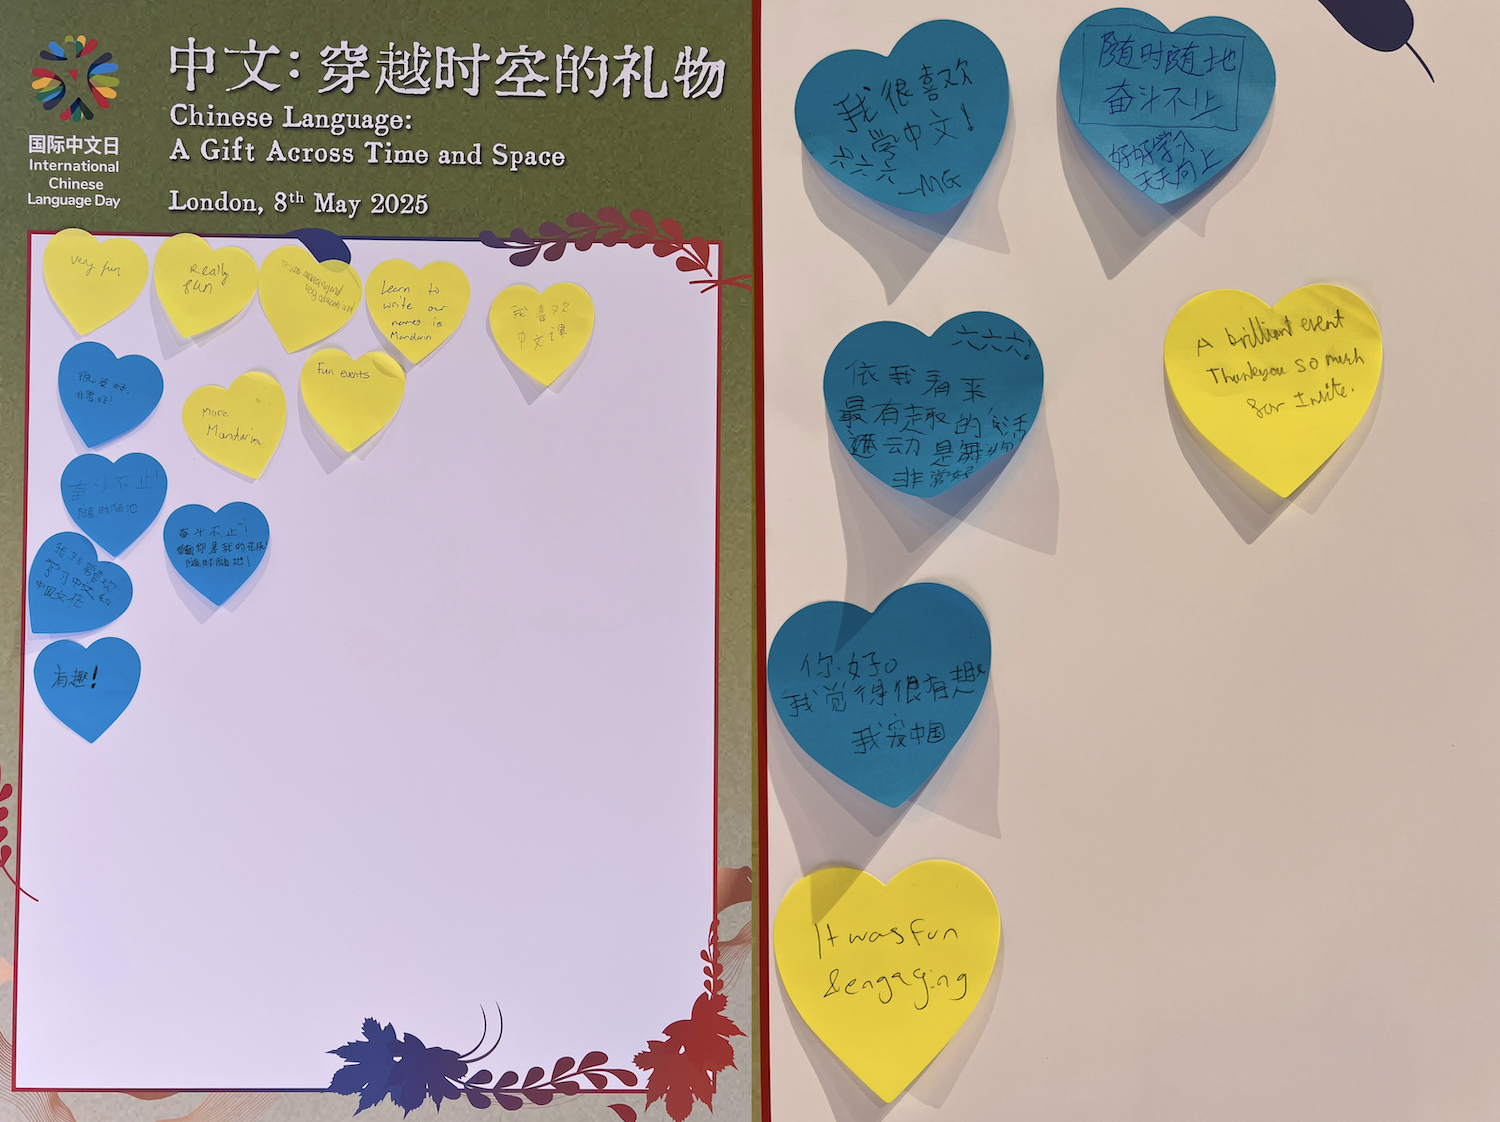 中文：穿越时空的礼物
Chinese Language:
A Gift Across Time and Space
London, 8th May 2025
国际中文日
International
Chinese
Language Day
very fun
Really
fun
It was interesting and
very educational
Learn to
write our
names in
Mandarin
我喜欢
中文课
很美好,
非常好!
More
Mandarin
Fun events
奋斗不止!
随时随地
奋斗不止!
你是我的花朵!
随时随地!
我非常喜欢
学习中文和
中国文化
有趣!
我很喜欢
学中文!
六六六
—MG
随时随地
奋斗不止
好好学习
天天向上
六六六!
依我看来
最有趣的
运动是舞
非常好
A brilliant event
Thankyou so much
for Invite.
你好。
我觉得很有趣
我爱中国
It was fun
& engaging